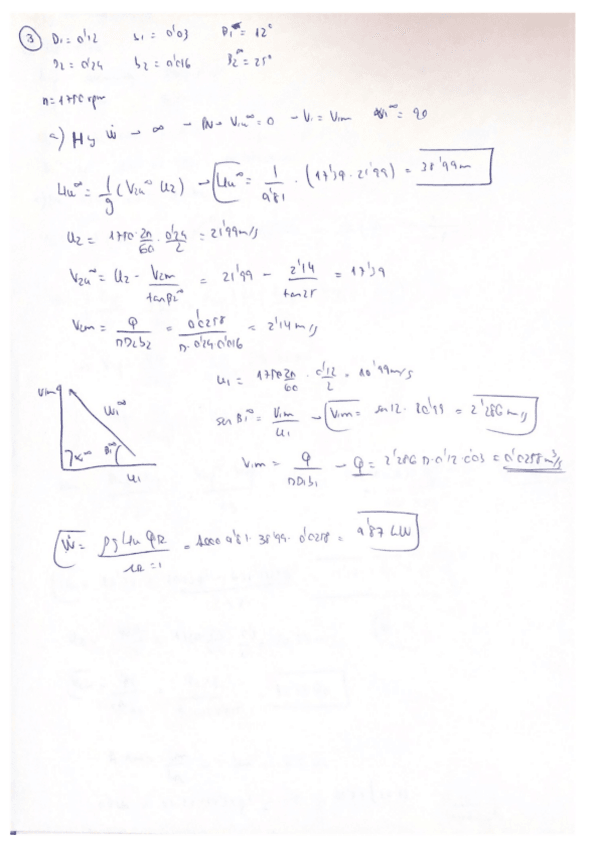 ③ D₁ = 0'12 b₁ = 0'03 β₁^∞ = 12°
D₂ = 0'24 b₂ = 0'016 β₂^∞ = 25°
n = 1750 rpm
a) H y Ẇ → ∞ → V₁u^∞ = 0 → V₁ = V₁m α₁^∞ = 90
Hu^∞ = 1/g (V₂u^∞ U₂) → Hu^∞ = 1/9'81 · (17'39 · 21'99) = 38'99 m
U₂ = 1750 · 2π/60 · 0'24/2 = 21'99 m/s
V₂u^∞ = U₂ - V₂m/tan β₂^∞ = 21'99 - 2'14/tan 25 = 17'39
V₂m = Q/πD₂b₂ = 0'0258/π · 0'24 · 0'016 = 2'14 m/s
U₁ = 1750 2π/60 · 0'12/2 = 10'99 m/s
V₁m
W₁^∞
α₁^∞ β₁^∞
U₁
sen β₁^∞ = V₁m/U₁ → V₁m = sen 12 · 10'99 = 2'286 m/s
V₁m = Q/πD₁b₁ → Q = 2'286 π · 0'12 · 0'03 = 0'0258 m³/s
Ẇ = ρ g Hu QR / = 1 = 1000 · 9'81 · 38'99 · 0'0258 = 9'87 kW